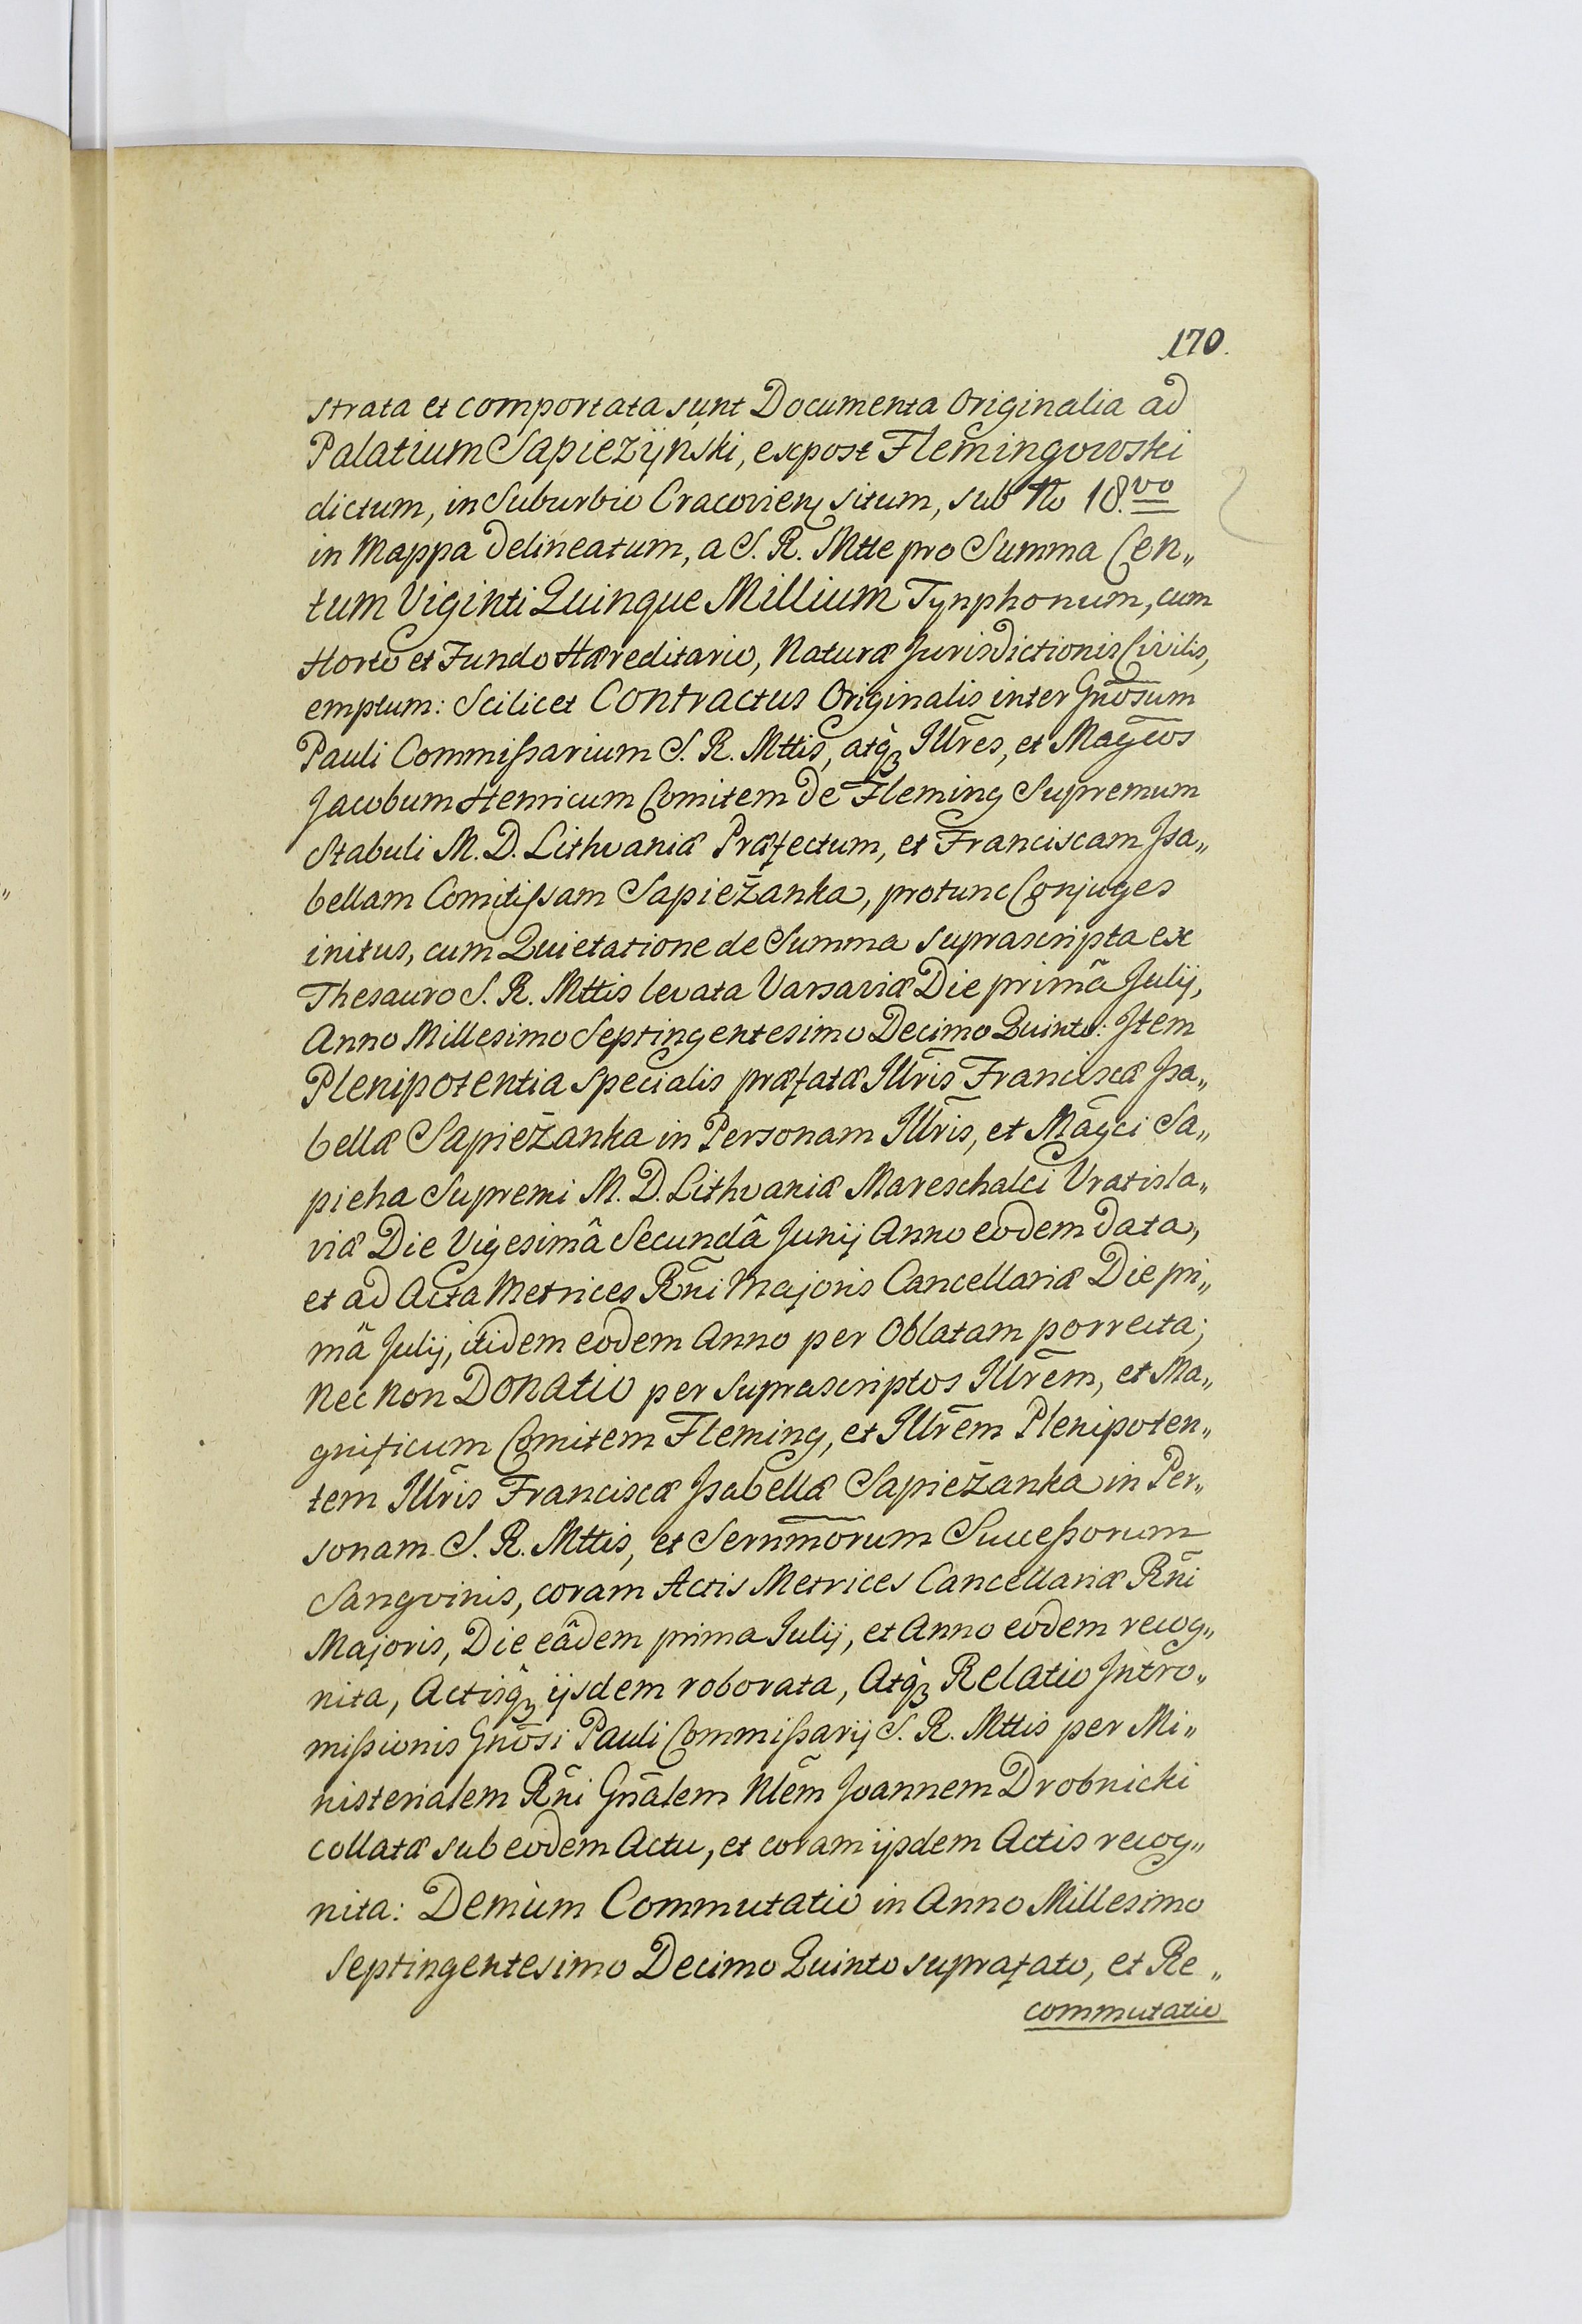 170.
strata et comportata sunt Documenta Originalia ad
Palatium Sapiezijnski, expost Flemingowski
dictum, in Suburbio Cracovien̄ situm, sub No 18.vo
in Mappa delineatum, a S. R. Mtte pro Summa Cen„
tum Viginti Quinque Millium Tynphonum, cum
Horto et Fundo Hæreditario, Naturæ Jurisdictionis Civilis,
emptum: Scilicet Contractus Originalis inter Gn̄osum
Pauli Commißarium S. R. Mttis, atq̀ȝ Illr̄es, et Magc̄os
Jacobum Henricum Comitem de Fleming Supremum
Stabuli M. D. Lithvaniæ Præfectum, et Franciscam Jsa„
bellam Comitißam Sapieżanka, protunc Conjuges
initus, cum Quietatione de Summa suprascripta ex
Thesauro S. R. Mttis levata Varsaviæ Die primâ Julij,
Anno Millesimo Septingentesimo Decimo Quinto: Jtem
Plenipotentia specialis præfatæ Illr̄is Franciscæ Jsa„
bellæ Sapieżanka in Personam Illr̄is, et Māgci Sa„
pieha Supremi M. D. Lithvaniæ Mareschalci Vratisla„
viæ Die Vigesimâ Secundâ Junij Anno eodem data,
et ad Acta Metrices Rn̄i Majoris Cancellariæ Die pri„
mâ Julij, itidem eodem Anno per Oblatam porrecta;
Nec non Donatio per suprascriptos Illr̄em, et Ma„
gnificum Comitem Fleming, et Illr̄em Plenipoten„
tem Illr̄is Franciscæ Jsabellæ Sapieżanka in Per„
sonam S. R. Mttis, et Sern̄mōrum Succeßorum
Sangvinis, coram Actis Metrices Cancellariæ Rn̄i
Majoris, Die eâdem prima Julij, et Anno eodem recog„
nita, Actisq̀ȝ ijsdem roborata, Atq̀ȝ Relatio Jntro„
mißionis Gn̄osi Pauli Commißarij S. R. Mttis per Mi„
nisterialem Rn̄i Gn̄alem Nlēm Joannem Drobnicki
collatæ sub eodem Actu, et coram ijsdem Actis recog„
nita: Demùm Commutatio in Anno Millesimo
Septingentesimo Decimo Quinto suprafato, et Re„
commutatio